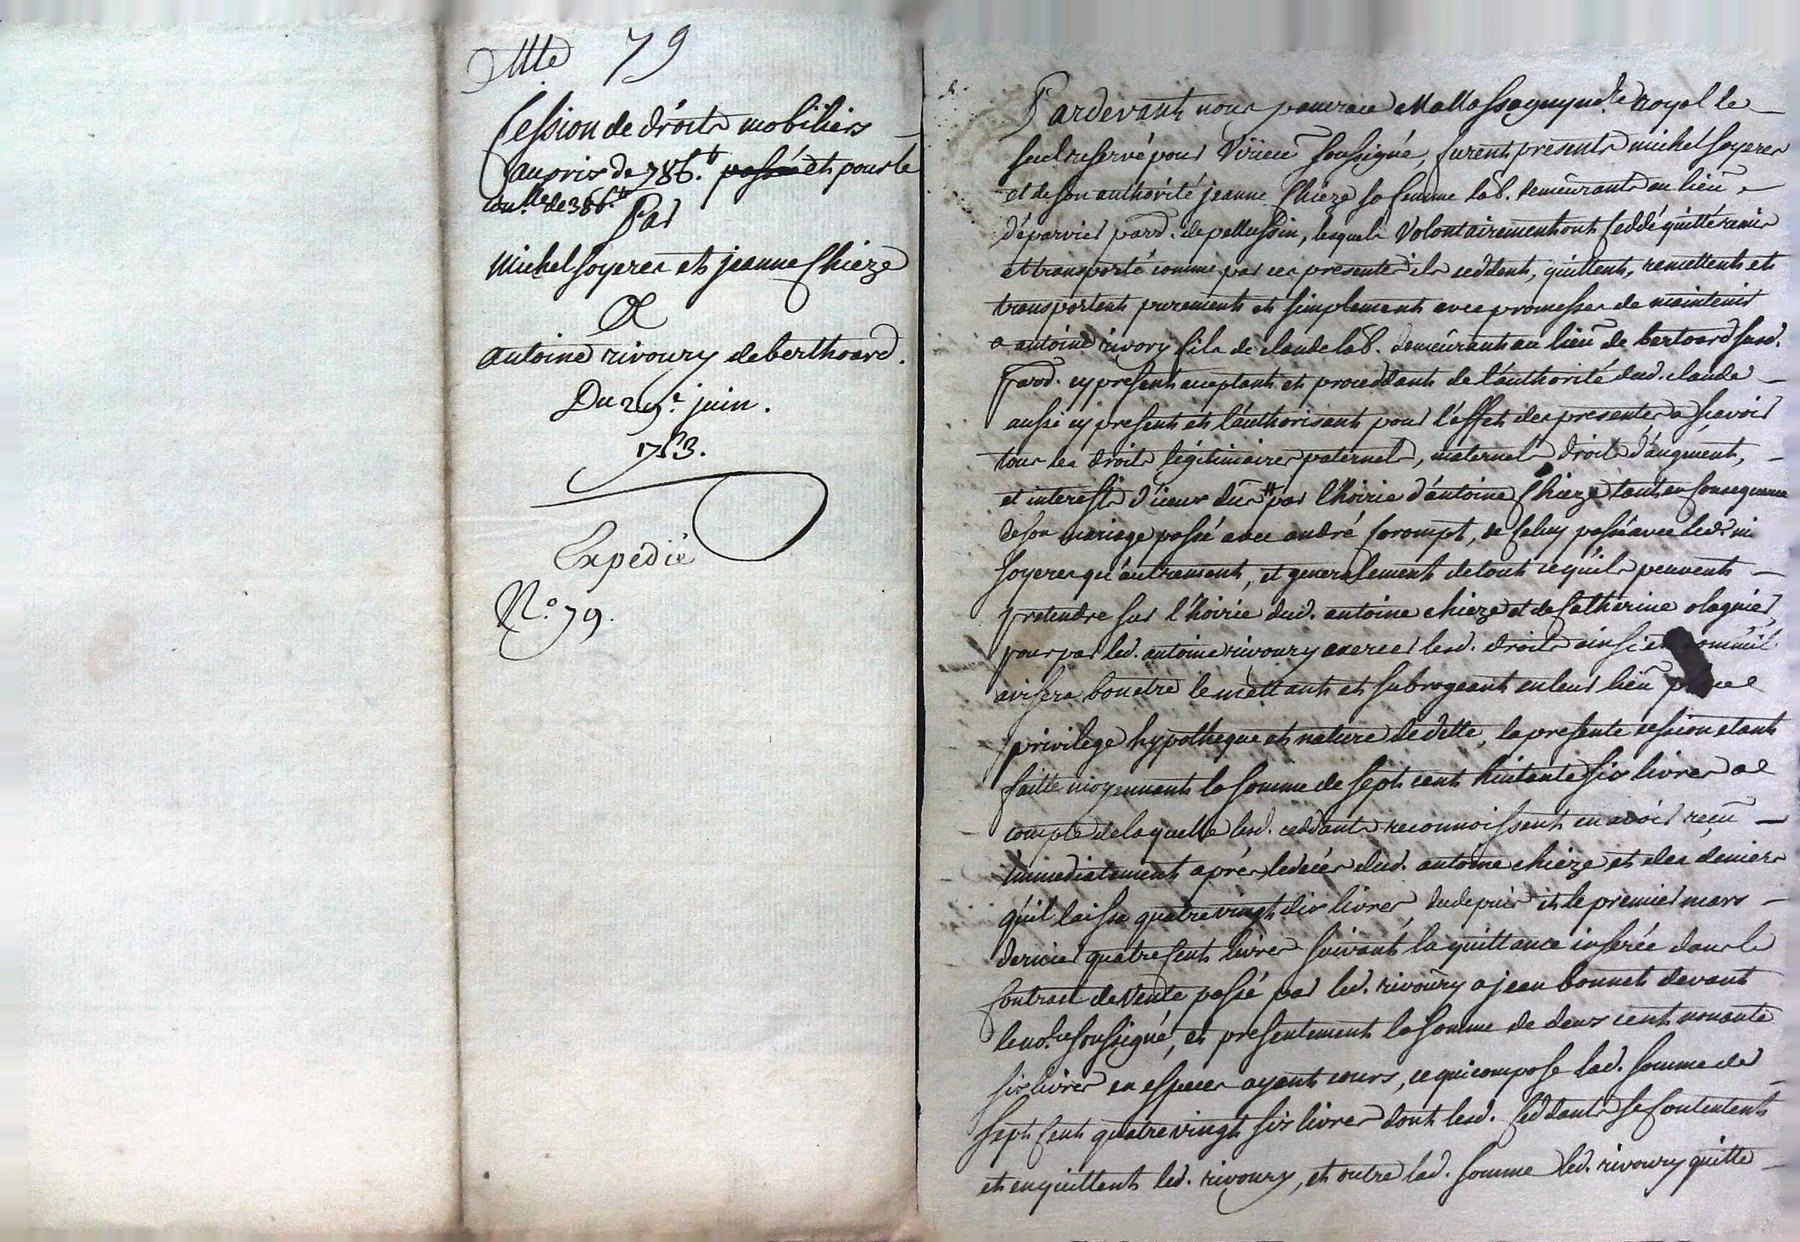 79
Cession de droits mobiliers
au prix de 786.tt passé et pour le
de 386.tt
Par
Michel soyere et jeanne Chieze
A
antoine rivoury de berthoard.
Du 29.e juin.
1783.
Expedié
N.o 79.
Pardevant nous pancrace Mattassagny no.re royal le
seul reservé pour Virieu soussigné, furent presents michel soyere
et de son authorité jeanne Chieze sa femme lab. demeurants au lieu
d'éparvier parr. de pellussin, lesquels volontairement ont ceddé quitté remis
et transporté comme par ces presentes ils ceddent, quittent, remettent et
transportent purement et simplement avec promesses de maintenir
a antoine rivory fils de claude lab. demeurant au lieu de bertoard susd.
parr. cy present acceptant et proceddant de l'authorité dud. claude
aussi cy present et l'authorisant pour l'effet des presentes a scavoir
tous les droits légitimaires paternels, maternels droits d'augment,
et interests d'iceux dus par l'hoirie d'antoine Chieze tant en consequence
de son mariage passé avec andré corompt, de celuy passé avec led. mi
soyere qu'autrement, et generalement de tout ce qu'ils peuvent
pretendre sur l'hoirie dud. antoine chieze et de Catherine olagnier,
pour par led. antoine rivoury axercer lesd. droits ainsi et comm'il
avisera bon etre le mettant et subrogeant en leur lieu place
privilege hypotheque et nature de dette, la presente cession etant
faitte moyennant la somme de sept cent huitante six livres a
compte de laquelle lesd. ceddants reconnoissent en avoir reçu
immediatement aprés le decés dud. antoine chieze et des deniers
qu'il laissa quatre vingt dix livres, du depuis et le premier mars
dernier quatre cent livres suivant la quittance inserée dans le
contract de vente passé par led. rivoury a jean bonnet devant
le no.re soussigné, et presentement la somme de deux cent nonante
six livres en especes ayant cours, ce qui compose lad. somme de
sept cent quatre vingt six livres dont lesd. ceddants se contentent
et en quittent led. rivoury, et outre lad. somme led. rivoury quitte